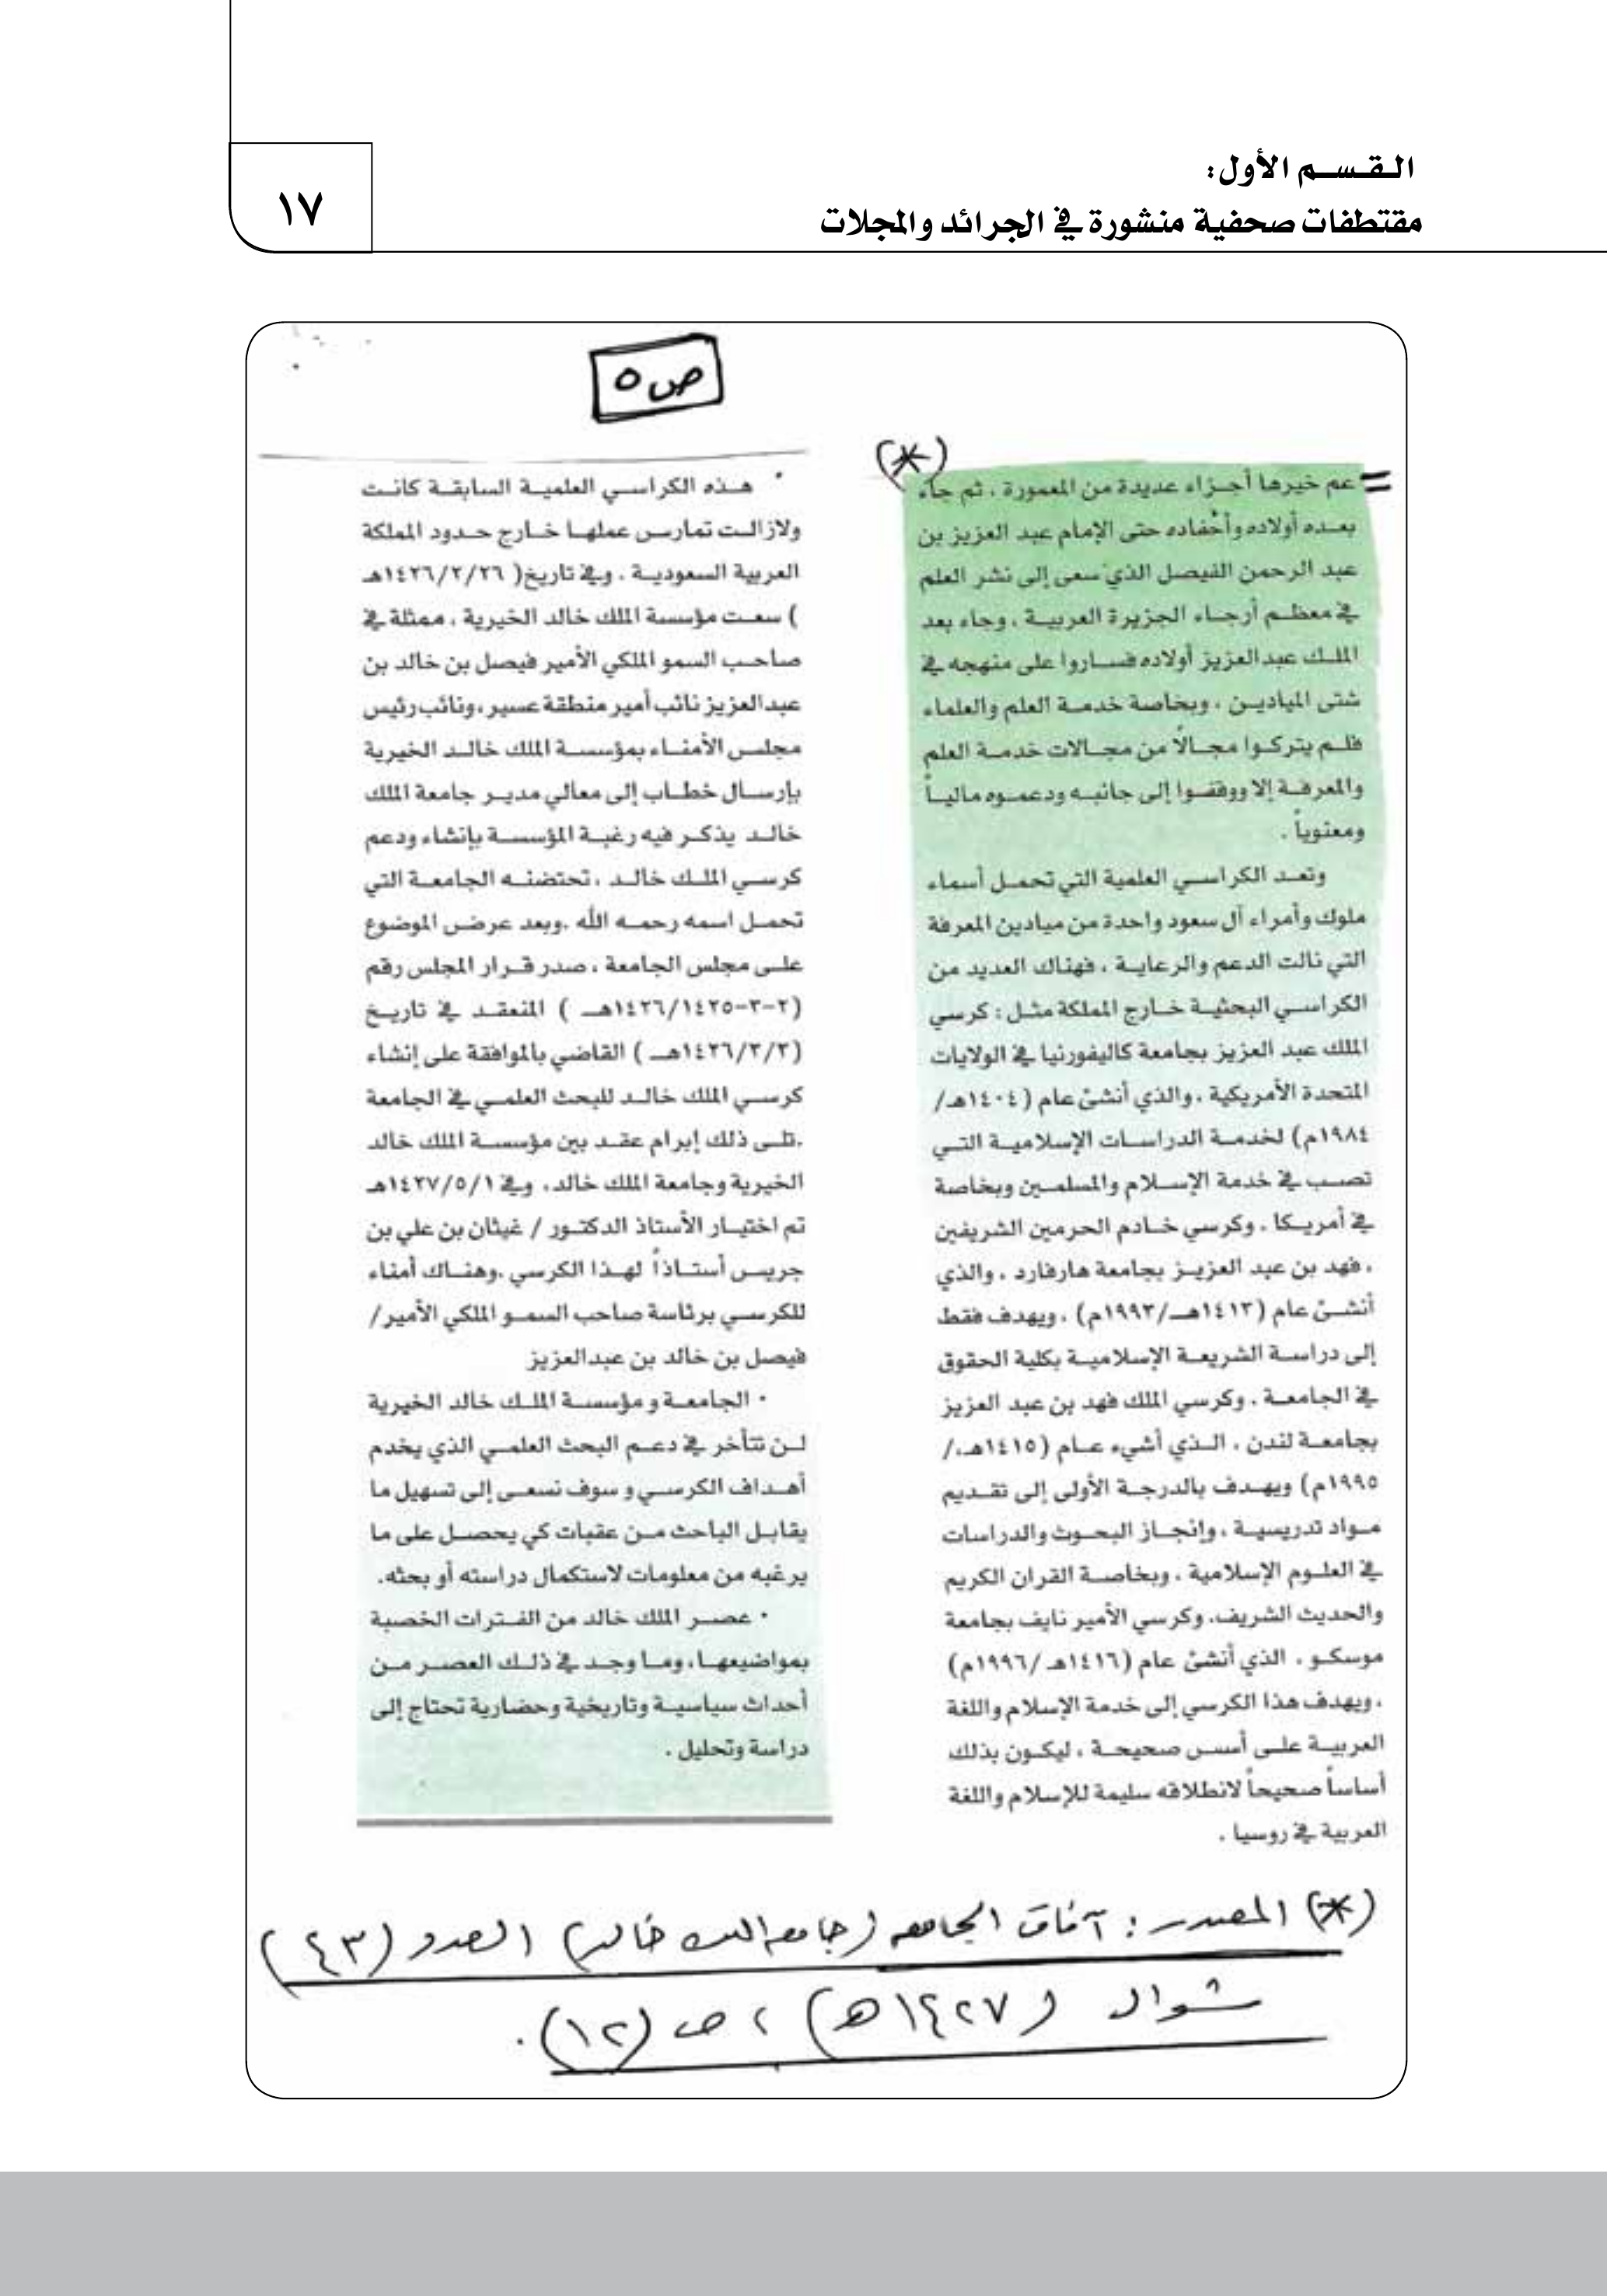 القسم الأول:
مقتطفات صحفية منشورة في الجرائد والمجلات
١٧
ص٥
(*)
= عم خيرها أجزاء عديدة من المعمورة ، ثم جاء
بعده أولاده وأحفاده حتى الإمام عبد العزيز بن
عبد الرحمن الفيصل الذي سعى إلى نشر العلم
في معظم أرجاء الجزيرة العربية ، وجاء بعد
الملك عبدالعزيز أولاده فساروا على منهجه في
شتى الميادين ، وبخاصة خدمة العلم والعلماء
فلم يتركوا مجالاً من مجالات خدمة العلم
والمعرفة إلا ووقفوا إلى جانبه ودعموه مالياً
ومعنوياً .
وتعد الكراسي العلمية التي تحمل أسماء
ملوك وأمراء آل سعود واحدة من ميادين المعرفة
التي نالت الدعم والرعاية ، فهناك العديد من
الكراسي البحثية خارج المملكة مثل : كرسي
الملك عبد العزيز بجامعة كاليفورنيا في الولايات
المتحدة الأمريكية ، والذي أنشئ عام (١٤٠٤هـ/
١٩٨٤م) لخدمة الدراسات الإسلامية التي
تصب في خدمة الإسلام والمسلمين وبخاصة
في أمريكا ، وكرسي خادم الحرمين الشريفين
، فهد بن عبد العزيز بجامعة هارفارد ، والذي
أنشئ عام (١٤١٣هـ/١٩٩٣م) ، ويهدف فقط
إلى دراسة الشريعة الإسلامية بكلية الحقوق
في الجامعة ، وكرسي الملك فهد بن عبد العزيز
بجامعة لندن ، الذي أشيء عام (١٤١٥هـ،/
١٩٩٥م) ويهدف بالدرجة الأولى إلى تقديم
مواد تدريسية ، وإنجاز البحوث والدراسات
في العلوم الإسلامية ، وبخاصة القران الكريم
والحديث الشريف، وكرسي الأمير نايف بجامعة
موسكو ، الذي أنشئ عام (١٤١٦هـ /١٩٩٦م)
، ويهدف هذا الكرسي إلى خدمة الإسلام واللغة
العربية على أسس صحيحة ، ليكون بذلك
أساساً صحيحاً لانطلاقه سليمة للإسلام واللغة
العربية في روسيا .
• هذه الكراسي العلمية السابقة كانت
ولازالت تمارس عملها خارج حدود المملكة
العربية السعودية ، وفي تاريخ( ١٤٢٦/٢/٢٦هـ
) سعت مؤسسة الملك خالد الخيرية ، ممثلة في
صاحب السمو الملكي الأمير فيصل بن خالد بن
عبدالعزيز نائب أمير منطقة عسير، ونائب رئيس
مجلس الأمناء بمؤسسة الملك خالد الخيرية
بإرسال خطاب إلى معالي مدير جامعة الملك
خالد يذكر فيه رغبة المؤسسة بإنشاء ودعم
كرسي الملك خالد ، تحتضنه الجامعة التي
تحمل اسمه رحمه الله .وبعد عرض الموضوع
على مجلس الجامعة ، صدر قرار المجلس رقم
(٢-٣-١٤٢٦/١٤٢٥هـ ) المنعقد في تاريخ
(١٤٢٦/٣/٢هـ ) القاضي بالموافقة على إنشاء
كرسي الملك خالد للبحث العلمي في الجامعة
.تلى ذلك إبرام عقد بين مؤسسة الملك خالد
الخيرية وجامعة الملك خالد، وفي ١٤٢٧/٥/١هـ
تم اختيار الأستاذ الدكتور / غيثان بن علي بن
جريس أستاذاً لهذا الكرسي .وهناك أمناء
للكرسي برئاسة صاحب السمو الملكي الأمير/
فيصل بن خالد بن عبدالعزيز
• الجامعة و مؤسسة الملك خالد الخيرية
لن تتأخر في دعم البحث العلمي الذي يخدم
أهداف الكرسي و سوف نسعى إلى تسهيل ما
يقابل الباحث من عقبات كي يحصل على ما
يرغبه من معلومات لاستكمال دراسته أو بحثه.
• عصر الملك خالد من الفترات الخصبة
بمواضيعها، وما وجد في ذلك العصر من
أحداث سياسية وتاريخية وحضارية تحتاج إلى
دراسة وتحليل .
(*) المصدر : آفاق الجامعه (جامعه الملك خالد) العدد (٤٣)
شوال (١٤٢٧هـ) ، ص (١٢).